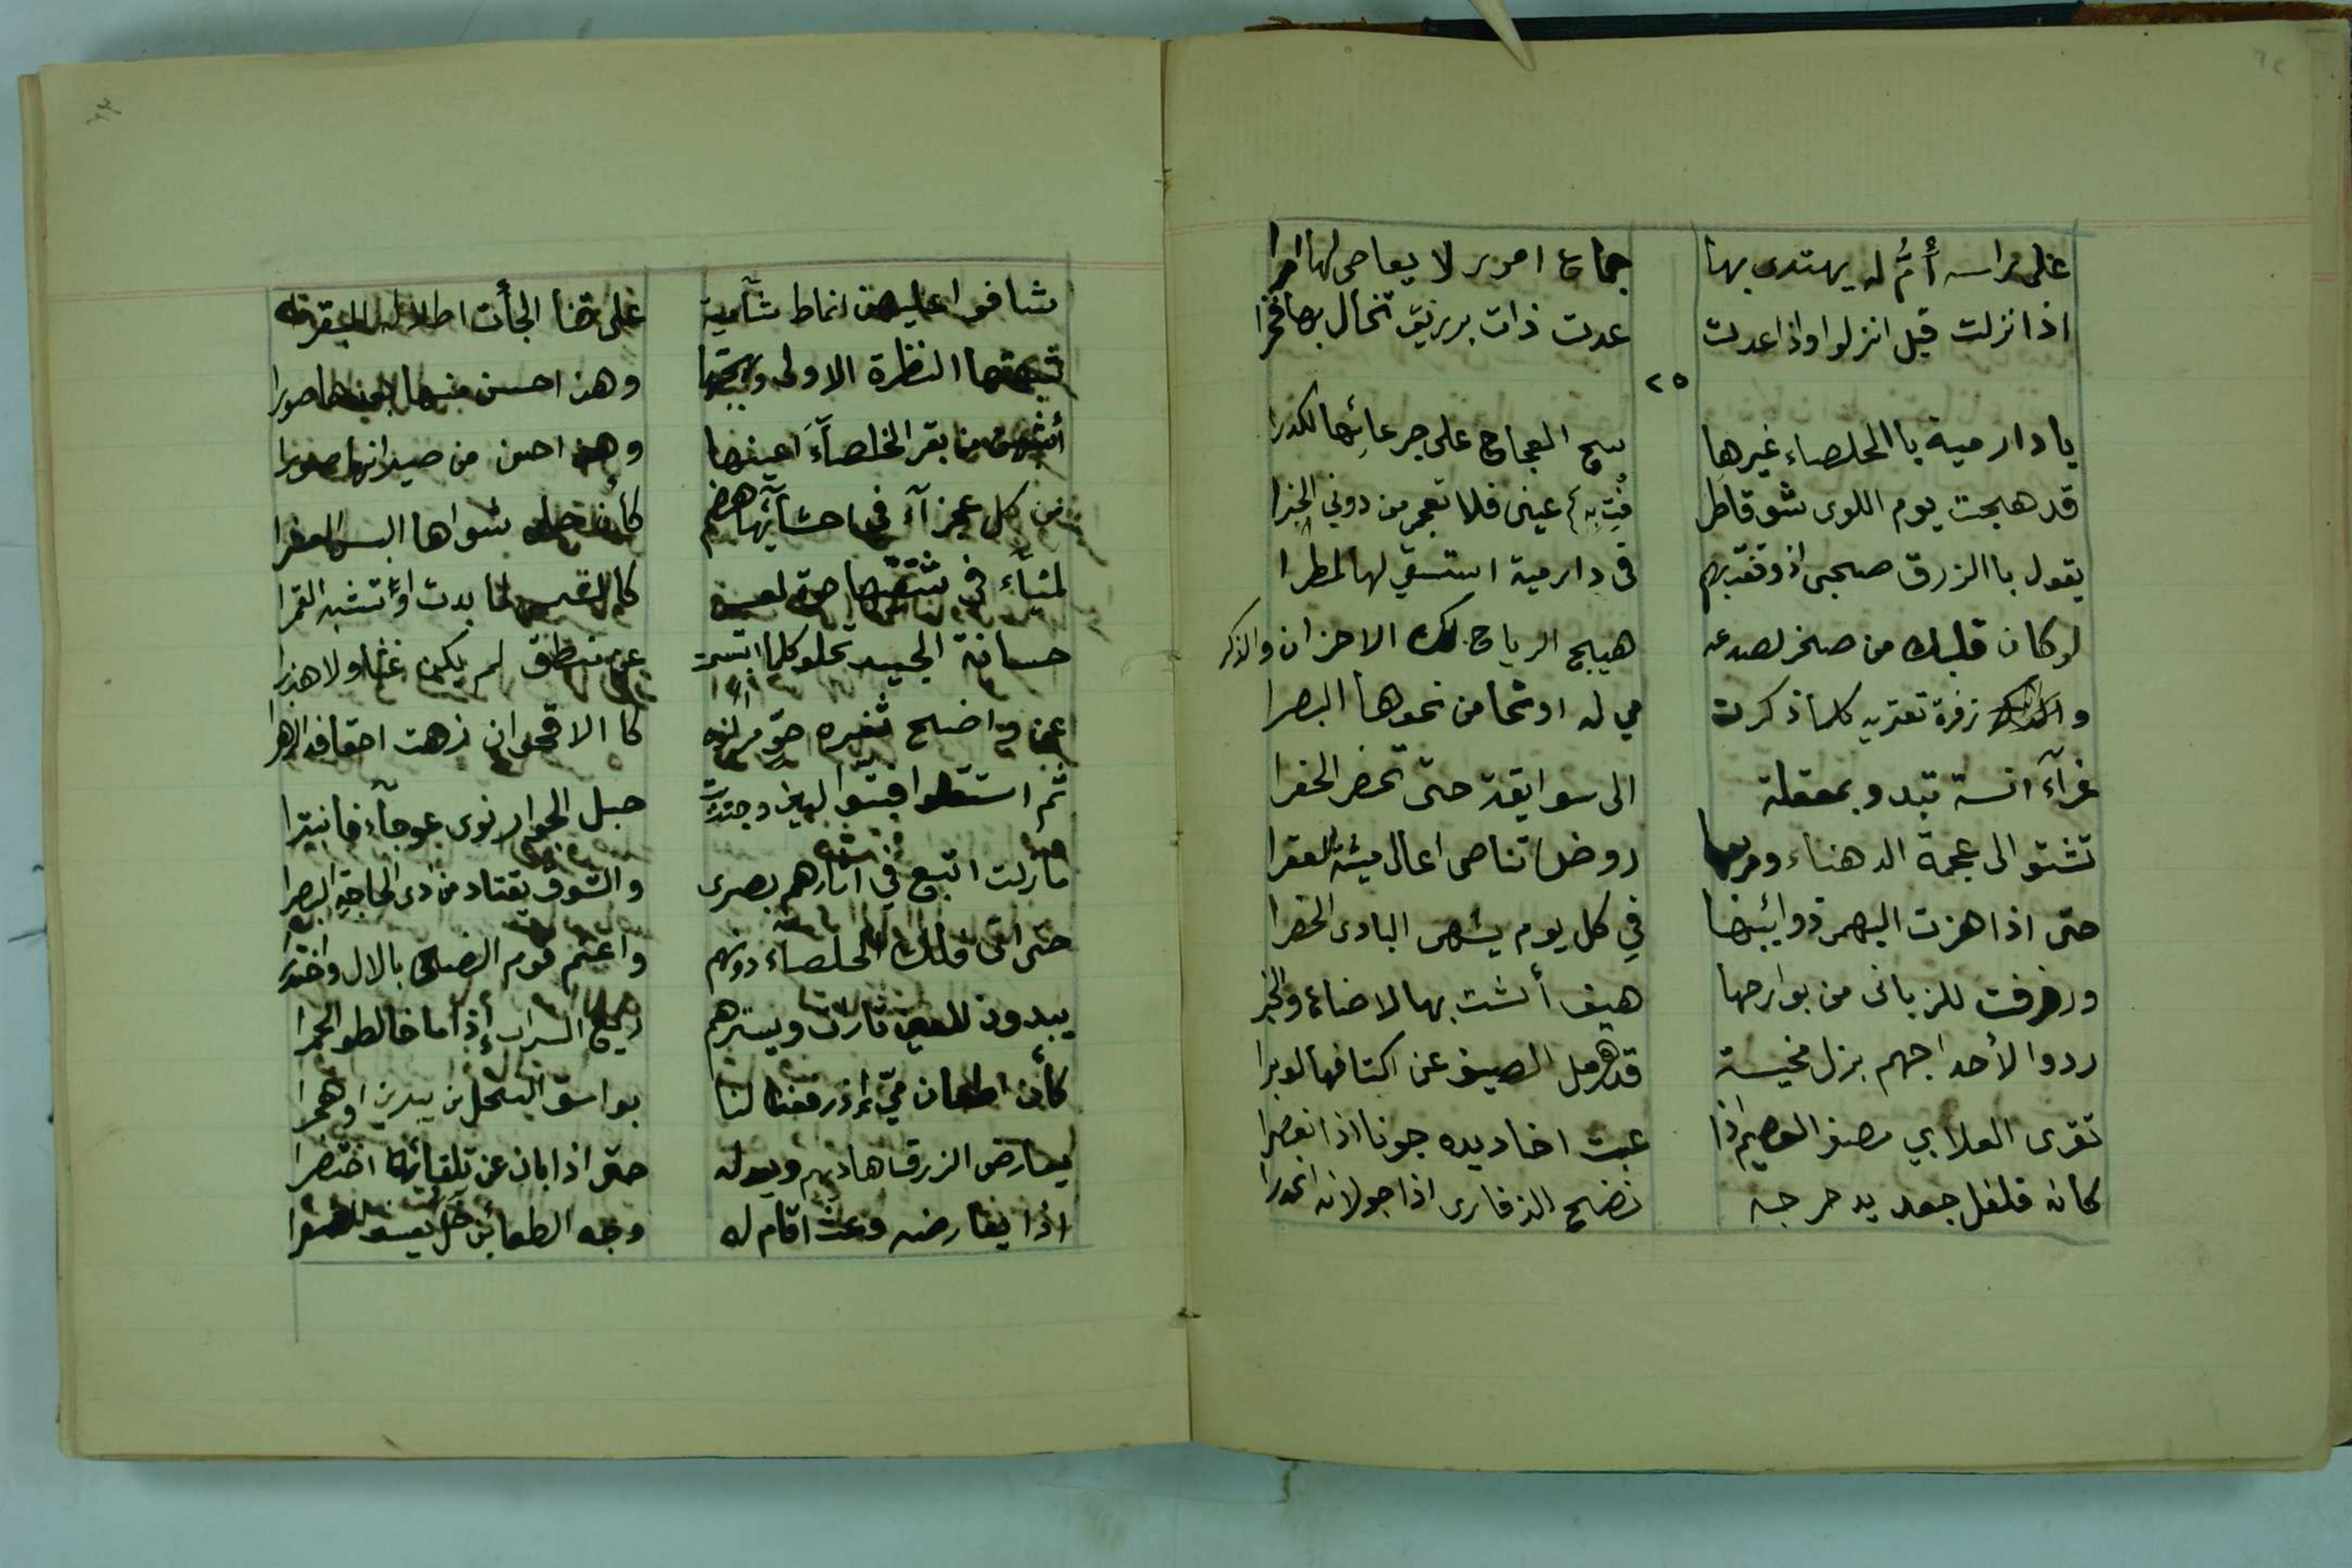 على راسه أُمُّ له يهتدى بها جماع امور لا يعاصى لها امرا
اذا نزلت قيل انزلوا واذا عدت عدت ذات برزيق تخال بها فخرا
٢٥
يا دار مية باالخلصاء غيرها سح العجاج على جرعائها الكدرا
قد هيجت يوم اللوى شوقا طرفت به عينى فلا تعجم من دوني الخبرا
يقول باالزرق صحبى اذ وقفت بهم فى دار مية استسقي لها المطرا
لو كان قلبك من صخر لصدعه هيج الرياح لك الاحزان والذكر
و زفرة تعتريه كلما ذكرت مي له او نحا من نحوها البصرا
غرآء آنسة تبدو بمعقلة الى سوايقة حتى تحضر الحفرا
تشتو الى عجمة الدهناء ومربعها روض تناصى اعالى ميثه العقرا
حتى اذا هزت البهمى ذوائبها في كل يوم يشهى البادى الحضرا
وزفزفت للزبانى من بوارحها هيف أنشت بها الاصناع والخبر
ردوا لأحداجهم بزلا مخيسة قد هرمل الصيف عن اكتافها الوبرا
تقرى العلابي مصفر العصيم اذا غبت اخاديده جونا اذا انعصرا
كانه فلفل جعد يدحرجه نضح الذفارى اذا جولانه انحدرا
شافوا عليهن انماط شآمية على قنا الجأت اطلاله البقر
شبهتها النظرة الاولى وبهجتها وهن احسن منها بعدها صورا
أشبهن من بقر الخلصآء اعينها وهن احسن من صيرانها صورا
من كل عجزآء في احشآئها هضم كأن حلي شواها البس العشرا
لميآء في شفتيها حوة لعس كالشمس لما بدت او تشبه القمرا
حسانة الجيد تحلو كلما ابتسمت عن منطق لم يكن غثا ولا هذرا
عن واضح ثغره حو مراكزه كا الاقحوان زهت احقافه الزهرا
ثم استقلوا فبتوا البين وجتذبت حبل الجوار نوى عوجآء فانبترا
مازلت اتبع في آثارهم بصرى والشوق يقتاد من ذى الحاجة البصرا
حتى اتى فلك الخلصآء دونهم واعتم قوم الضحى بالال واختدرا
يبدون للعين تارات ويسترهم ريع السراب إذا ما خالطوا الخمرا
كأن اظعان مي اذ رفعنا لنا بواسق النخل من يبرين او هجرا
يعارض الزرق هاديهم ويعدله حتى اذا بان عن تلقائها اختصرا
اذا يعارضه وعث اقام له وجه الظعائن خل يعسف الضفرا